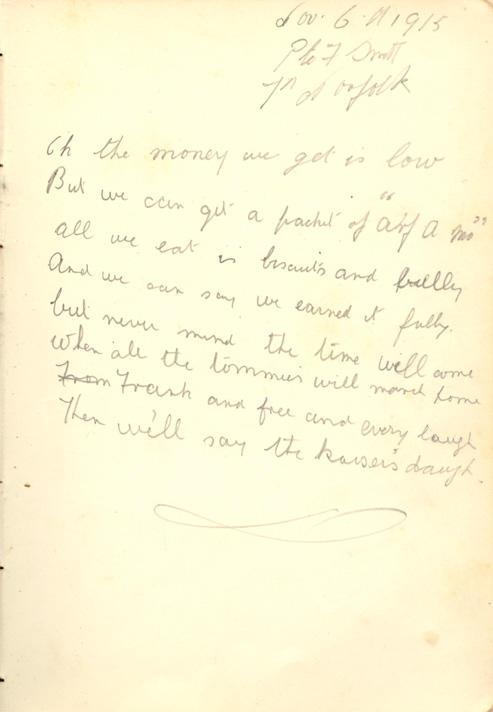 Nov. 6. th 1915
Pte F Smith
7th Norfolk
Oh the money we get is low
But we can get a packet of "arf a mo"
all we eat is biscuits and bully
And we can say we earned it fully.
but never mind the time will come
when all the tommies will march home
From Frank and free and every laugh
Then we'll say the kaiser's daugh